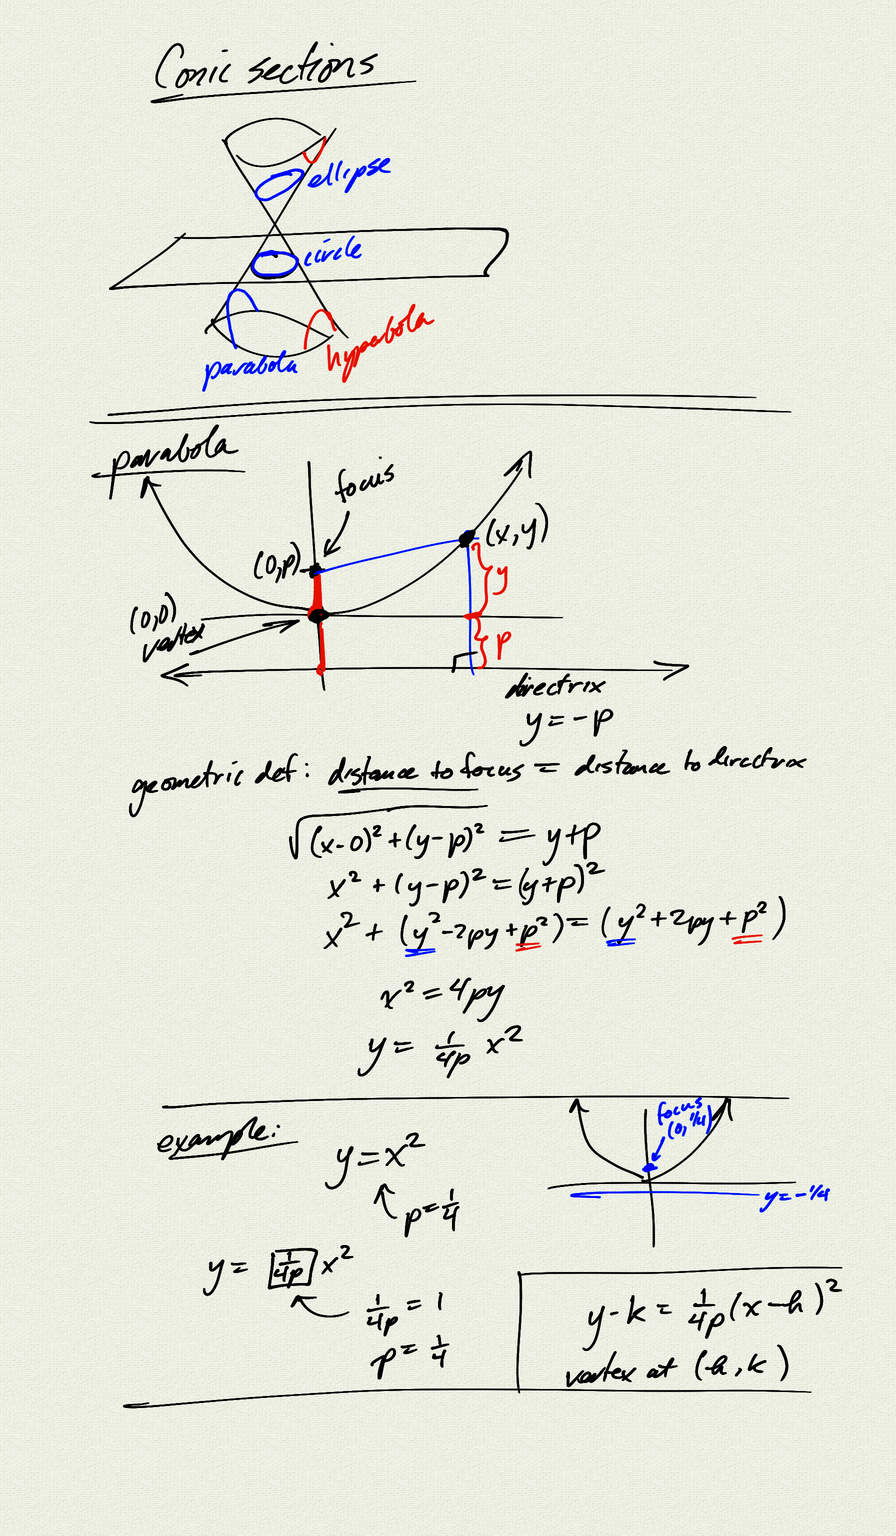 Conic sections
ellipse
circle
parabola
hyperbola
parabola
focus
(0,p)
(x,y)
y
(0,0)
vertex
p
directrix
y = -p
geometric def: distance to focus = distance to directrix
√(x-0)² + (y-p)² = y+p
x² + (y-p)² = (y+p)²
x² + (y² - 2py + p²) = (y² + 2py + p²)
x² = 4py
y = 1/4p x²
example:
y = x²
p = 1/4
focus
(0, 1/4)
y = -1/4
y = 1/4p x²
1/4p = 1
p = 1/4
y - k = 1/4p (x - h)²
vertex at (h, k)